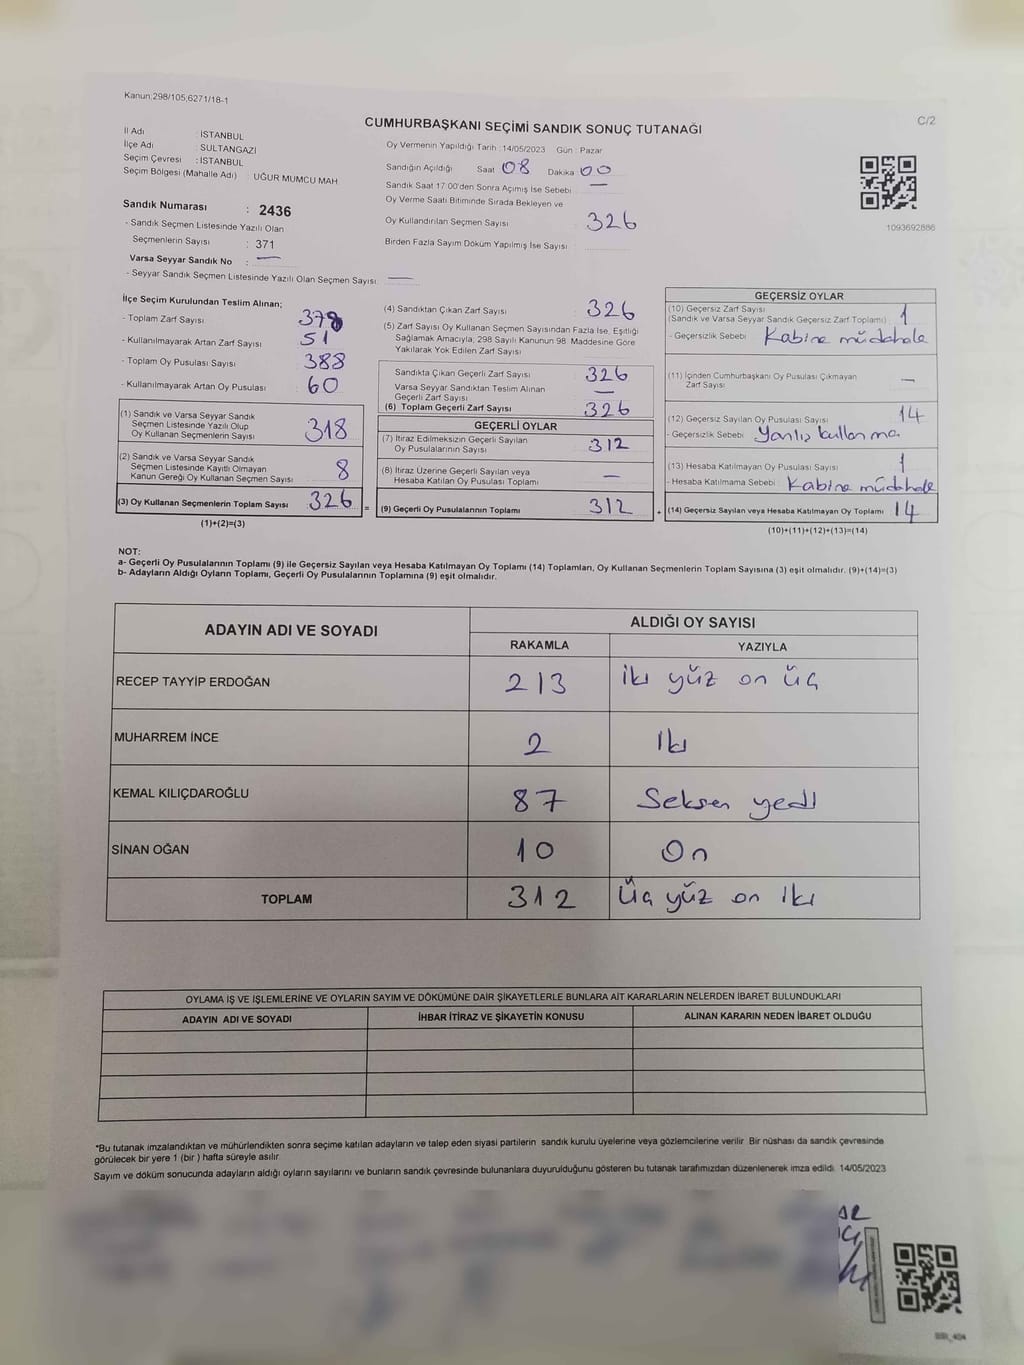 Kanun;298/105;6271/18-1
C/2
CUMHURBAŞKANI SEÇİMİ SANDIK SONUÇ TUTANAĞI
İl Adı : İSTANBUL
İlçe Adı : SULTANGAZİ
Seçim Çevresi : İSTANBUL
Seçim Bölgesi (Mahalle Adı) : UĞUR MUMCU MAH.
Sandık Numarası : 2436
- Sandık Seçmen Listesinde Yazılı Olan
Seçmenlerin Sayısı : 371
Varsa Seyyar Sandık No : —
- Seyyar Sandık Seçmen Listesinde Yazılı Olan Seçmen Sayısı: —
Oy Vermenin Yapıldığı Tarih : 14/05/2023 Gün : Pazar
Sandığın Açıldığı Saat 08 Dakika 00
Sandık Saat 17:00'den Sonra Açımış İse Sebebi : —
Oy Verme Saati Bitiminde Sırada Bekleyen ve
Oy Kullandırılan Seçmen Sayısı : 326
Birden Fazla Sayım Döküm Yapılmış İse Sayısı:
1093692886
İlçe Seçim Kurulundan Teslim Alınan;
- Toplam Zarf Sayısı : 378
- Kullanılmayarak Artan Zarf Sayısı : 51
- Toplam Oy Pusulası Sayısı : 388
- Kullanılmayarak Artan Oy Pusulası : 60
(1) Sandık ve Varsa Seyyar Sandık
Seçmen Listesinde Yazılı Olup
Oy Kullanan Seçmenlerin Sayısı : 318
(2) Sandık ve Varsa Seyyar Sandık
Seçmen Listesinde Kayıtlı Olmayan
Kanun Gereği Oy Kullanan Seçmen Sayısı : 8
(3) Oy Kullanan Seçmenlerin Toplam Sayısı : 326
(1)+(2)=(3)
(4) Sandıktan Çıkan Zarf Sayısı : 326
(5) Zarf Sayısı Oy Kullanan Seçmen Sayısından Fazla İse, Eşitliği
Sağlamak Amacıyla; 298 Sayılı Kanunun 98. Maddesine Göre
Yakılarak Yok Edilen Zarf Sayısı :
Sandıkta Çıkan Geçerli Zarf Sayısı : 326
Varsa Seyyar Sandıktan Teslim Alınan
Geçerli Zarf Sayısı : —
(6) Toplam Geçerli Zarf Sayısı : 326
GEÇERLİ OYLAR
(7) İtiraz Edilmeksizin Geçerli Sayılan
Oy Pusulalarının Sayısı : 312
(8) İtiraz Üzerine Geçerli Sayılan veya
Hesaba Katılan Oy Pusulası Toplamı : —
= (9) Geçerli Oy Pusulalarının Toplamı : 312 +
GEÇERSİZ OYLAR
(10) Geçersiz Zarf Sayısı
(Sandık ve Varsa Seyyar Sandık Geçersiz Zarf Toplamı) : 1
- Geçersizlik Sebebi : Kabine müdahale
(11) İçinden Cumhurbaşkanı Oy Pusulası Çıkmayan
Zarf Sayısı : —
(12) Geçersiz Sayılan Oy Pusulası Sayısı : 14
- Geçersizlik Sebebi : Yanlış kullanma
(13) Hesaba Katılmayan Oy Pusulası Sayısı : 1
- Hesaba Katılmama Sebebi : Kabine müdahale
(14) Geçersiz Sayılan veya Hesaba Katılmayan Oy Toplamı : 14
(10)+(11)+(12)+(13)=(14)
NOT:
a- Geçerli Oy Pusulalarının Toplamı (9) ile Geçersiz Sayılan veya Hesaba Katılmayan Oy Toplamı (14) Toplamları, Oy Kullanan Seçmenlerin Toplam Sayısına (3) eşit olmalıdır. (9)+(14)=(3)
b- Adayların Aldığı Oyların Toplamı, Geçerli Oy Pusulalarının Toplamına (9) eşit olmalıdır.
ADAYIN ADI VE SOYADI
ALDIĞI OY SAYISI
RAKAMLA YAZIYLA
RECEP TAYYİP ERDOĞAN 213 iki yüz on üç
MUHARREM İNCE 2 İki
KEMAL KILIÇDAROĞLU 87 Seksen yedi
SİNAN OĞAN 10 On
TOPLAM 312 Üç yüz on iki
OYLAMA İŞ VE İŞLEMLERİNE VE OYLARIN SAYIM VE DÖKÜMÜNE DAİR ŞİKAYETLERLE BUNLARA AİT KARARLARIN NELERDEN İBARET BULUNDUKLARI
ADAYIN ADI VE SOYADI İHBAR İTİRAZ VE ŞİKAYETİN KONUSU ALINAN KARARIN NEDEN İBARET OLDUĞU
*Bu tutanak imzalandıktan ve mühürlendikten sonra seçime katılan adayların ve talep eden siyasi partilerin sandık kurulu üyelerine veya gözlemcilerine verilir. Bir nüshası da sandık çevresinde
görülecek bir yere 1 (bir) hafta süreyle asılır.
Sayım ve döküm sonucunda adayların aldığı oyların sayılarını ve bunların sandık çevresinde bulunanlara duyurulduğunu gösteren bu tutanak tarafımızdan düzenlenerek imza edildi. 14/05/2023